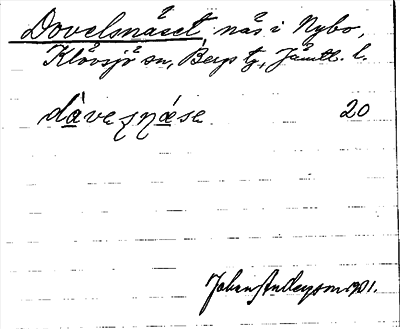 Dovelsnäset, näs i Nybo,
Klövsjö sn, Bergs tg., Jämtl. l.
dàveʒnǽse 20
Johan Anderson 1901.